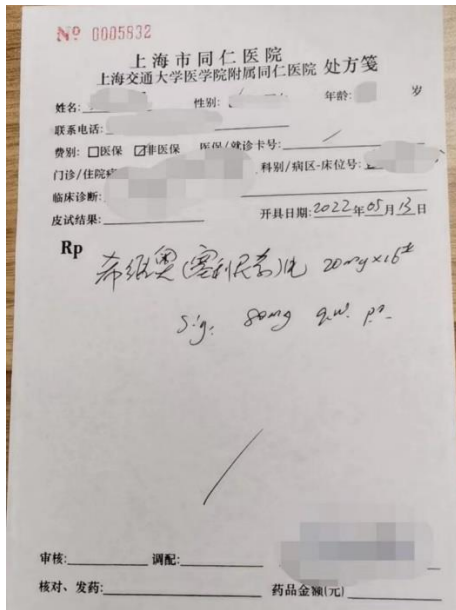 Nº 0005832
上海市同仁医院
上海交通大学医学院附属同仁医院 处方笺
姓名: 性别: 年龄: 岁
联系电话:
费别: □医保 ☑非医保 医保/就诊卡号:
门诊/住院 科别/病区-床位号:
临床诊断:
皮试结果: 开具日期:2022年05月13日
Rp
希维奥(塞利尼索)片 20mg×16#
Sig. 80mg q.w. p.o.
审核: 调配:
核对、发药: 药品金额(元)